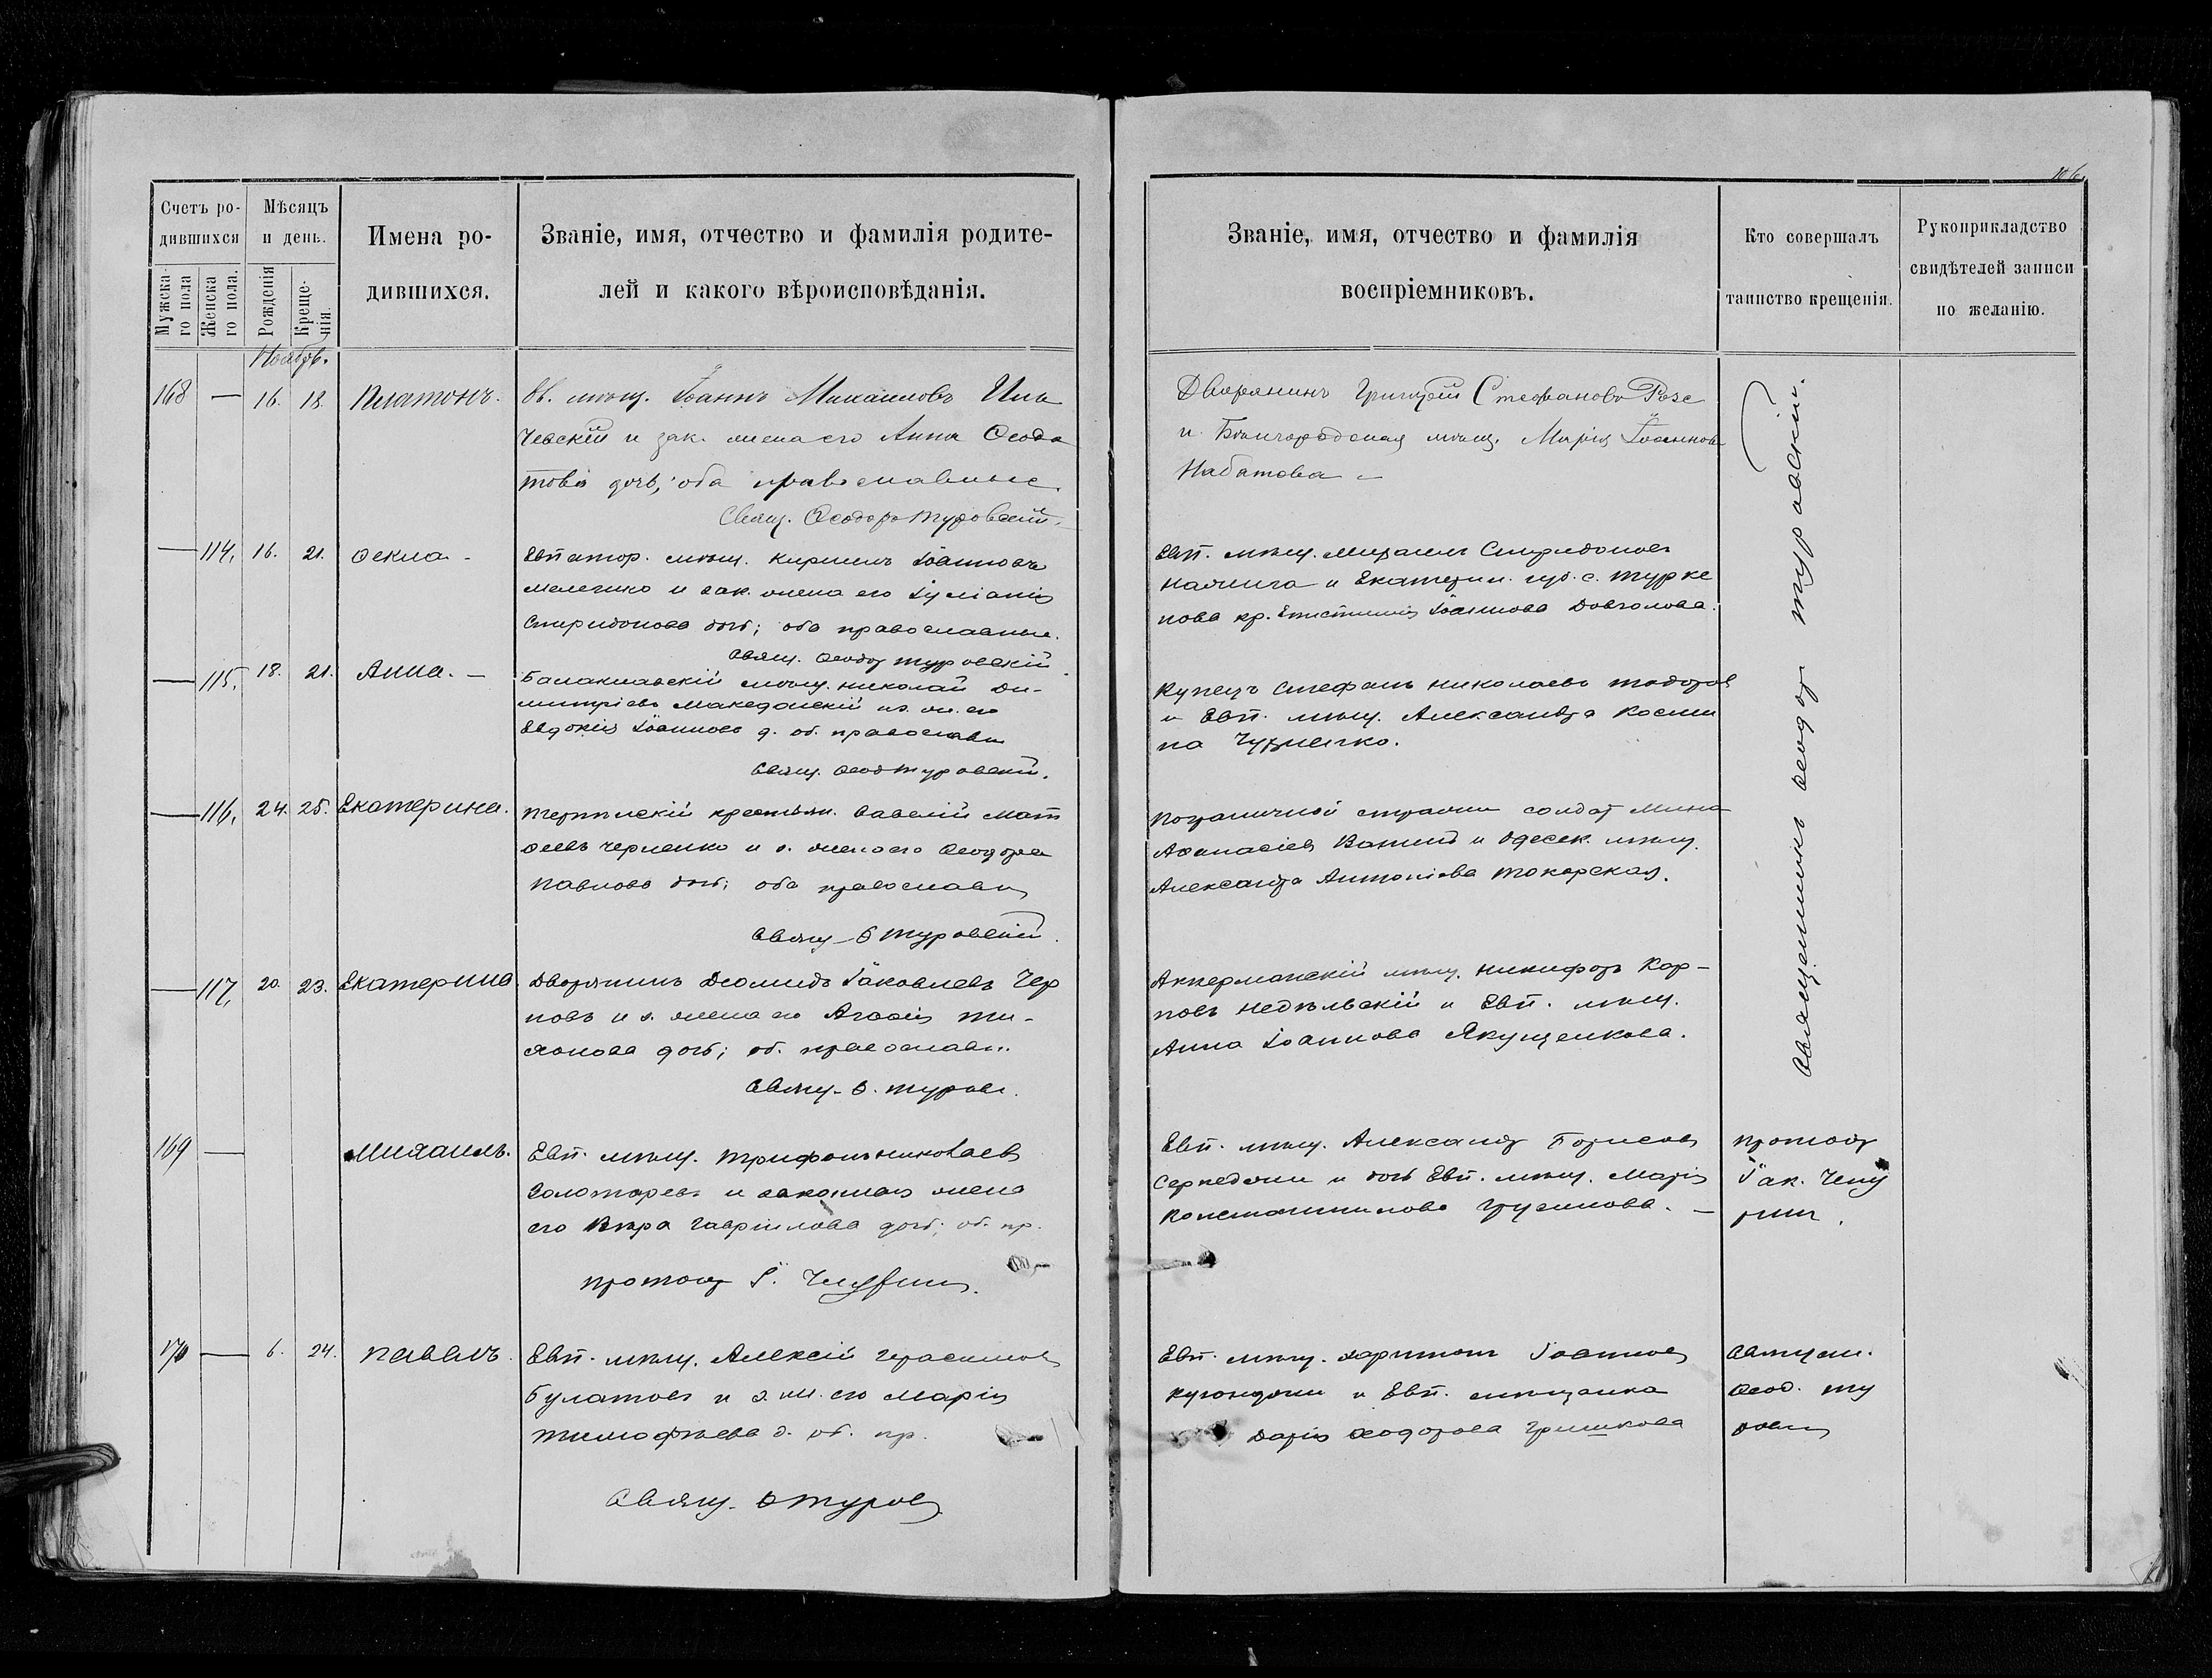 Счетъ ро-
дившихся
Мужска-
го пола
Женска
го пола.
Мѣсяцъ
и день.
Рожденія
Креще-
нія.
Имена ро-
дившихся.
Званіе, имя, отчество и фамилія родите-
лей и какого вѣроисповѣданія.
Званіе, имя, отчество и фамилія
воспріемниковъ.
Кто совершалъ
таинство крещенія.
Рукоприкладство
свидѣтелей записи
по желанію.
Ноябрь.
168 — 16. 18. Платонъ.
Ев. мѣщ. Іоаннъ Михаиловъ
и зак. жена его Анна Ѳеодо
това дочь, оба православные.
Свящ. Ѳеодоръ Туровскій.
Дворянинъ Григорій Стефановъ Розе
и Бѣлгородская мѣщ. Марія Іоаннова
Набатова —
— 114, 16. 21. Ѳекла —
Евпатор. мѣщ. Кириллъ Іоанновъ
и зак. жена его Іуліанія
Спиридонова дочь; оба православные.
Свящ. Ѳеодоръ Туровскій
Евп. мѣщ. Михаилъ Спиридоновъ
и Екатерин. губ. с. Турке
нова кр. Іоаннова Довголова.
— 115, 18. 21. Анна. —
Балаклавскій мѣщ. Николай Ди-
митріевъ Македонскій из. ж. его
Евдокія Іоаннова д. об. православн
Свящ. Ѳеод Туровскій.
Купецъ Стефанъ Николаевъ Тодоров
и Евп. мѣщ. Александра Косми
на
— 116, 24. 25. Екатерина.
крестьян. Савелій Мат
ѳеевъ Черненко и з. жена его Ѳеодора
Павлова дочь; оба православн
Свящ — Ѳ Туровскій.
Пограничной стражи солдат Мина
Аѳанасіевъ и Одесск. мѣщ.
Александра Антоніева Токарская.
— 117, 20. 23. Екатерина
Дворянинъ Діомидъ Іаковлевъ Чер
новъ и з. жена его Агаѳія Ти-
хонова дочь; об. православн.
Свящ — Ѳ. Туровс.
Аккерманскій мѣщ. Никифоръ Кар-
повъ Недѣльскій и Евп. мѣщ.
Анна Іоаннова Якущенкова.
Священникъ Ѳеодор Туровскій.
169 — Михаилъ.
Евп. мѣщ. Трифонъ Николаев
Золотаревъ и законная жена
его Вѣра Гавріилова дочь; об. пр.
Протоіер І. Чепурин
Евп. мѣщ. Александр Борисов
и дочь Евп. мѣщ. Марія
Константинова —
Протоіер
Іак. Чепу
рин.
170 — 6. 24. Павелъ.
Евп. мѣщ. Алексій Герасимов
Булатовъ и з. ж. его Марія
Тимофѣева д. об. пр.
Свящ — Ѳ Туровс
Евп. мѣщ. Харитон Іоаннов
и Евп. мѣщанка
Дарія Ѳеодорова Гришкова
Священ.
Ѳеод. Ту
ровск